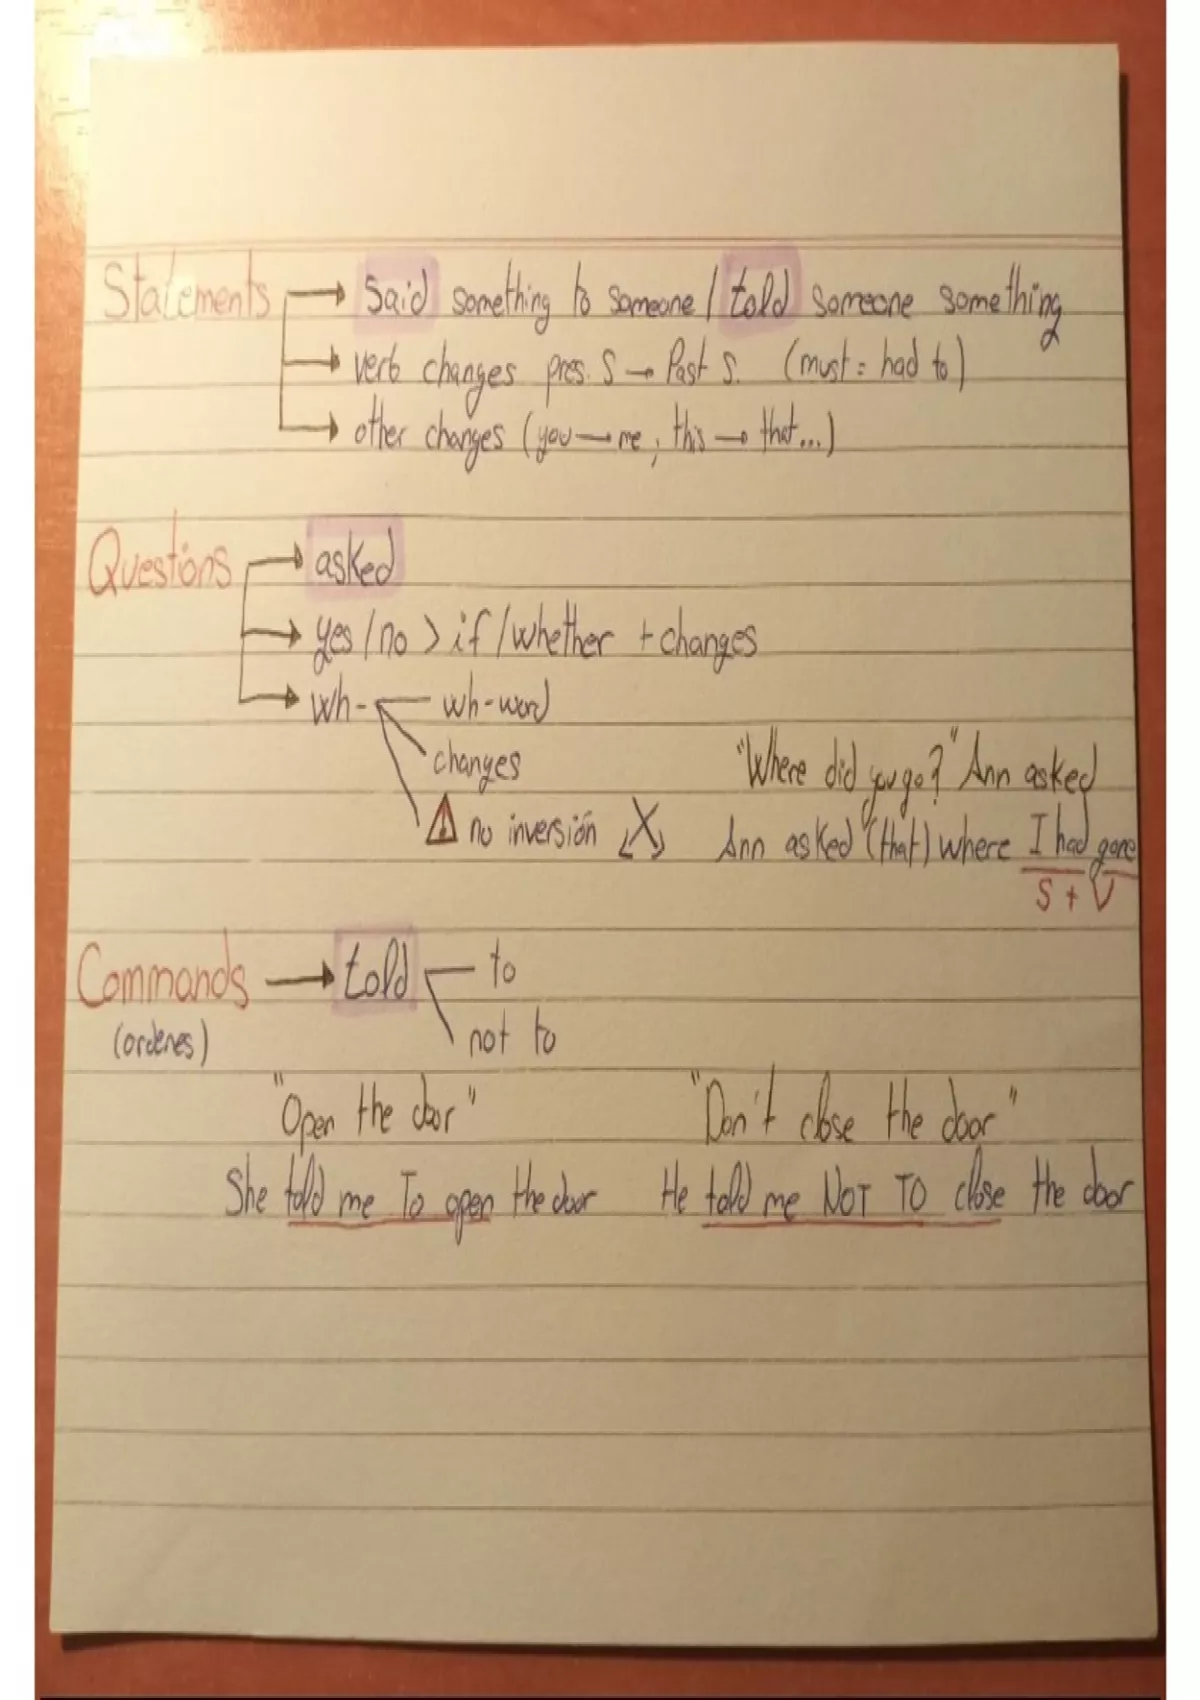 Statements → Said something to someone / told someone something
→ verb changes pres. S → Past S. (must = had to)
→ other changes (you → me, this → that...)
Questions → asked
→ yes / no > if / whether + changes
→ Wh- wh-word
changes
"Where did you go?" Ann asked
⚠ no inversión
Ann asked (that) where I had gone
S + V
Commands → told to
(ordenes) not to
"Open the door" "Don't close the door"
She told me To open the door He told me NOT TO close the door